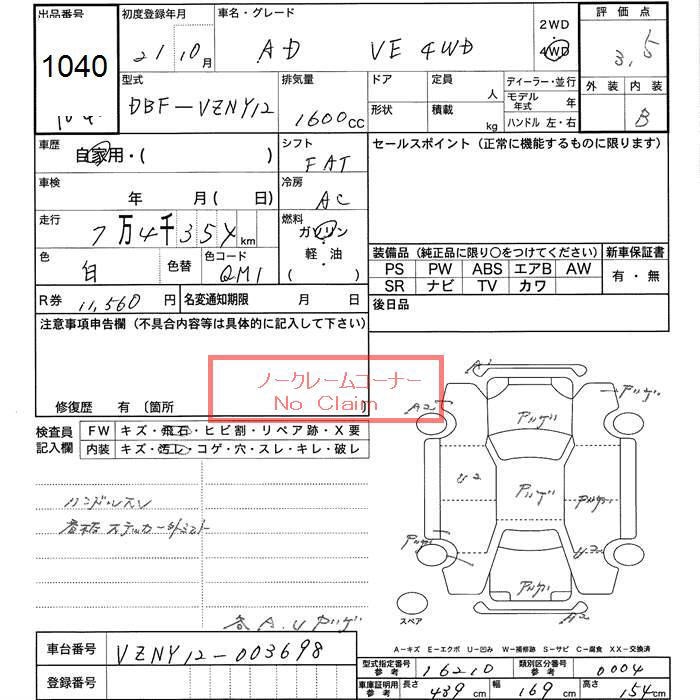 出品番号
1040
初度登録年月
21 10月
車名・グレード
AD VE 4WD
2WD
4WD
評価点
3.5
外装 内装
B
型式
DBF-VZNY12
排気量
1600cc
ドア
形状
定員
人
積載
kg
ディーラー・並行
モデル年式 年
ハンドル 左・右
車歴
自家用・( )
シフト
FAT
車検
年 月( 日)
冷房
AC
走行
7万4千35 km
燃料
ガソリン
軽油
( )
色
白
色替
色コード
QM1
R券
11,560円
名変通知期限 月 日
セールスポイント(正常に機能するものに限ります)
装備品(純正品に限り○をつけてください)
新車保証書
PS PW ABS エアB AW
SR ナビ TV カワ
有・無
後日品
注意事項申告欄(不具合内容等は具体的に記入して下さい)
ノークレームコーナー
No Claim
修復歴 有〔箇所
検査員記入欄
FW キズ・飛石・ヒビ割・リペア跡・X要
内装 キズ・汚レ・コゲ・穴・スレ・キレ・破レ
A1
A2
U2
A2
スペア
A-キズ E-エクボ U-凹み W-補修跡 S-サビ C-腐食 XX-交換済
車台番号
VZNY12-003698
登録番号
型式指定番号 参考
16210
類別区分番号 参考
0004
車庫証明用 参考
長さ 439cm
幅 169cm
高さ 154cm